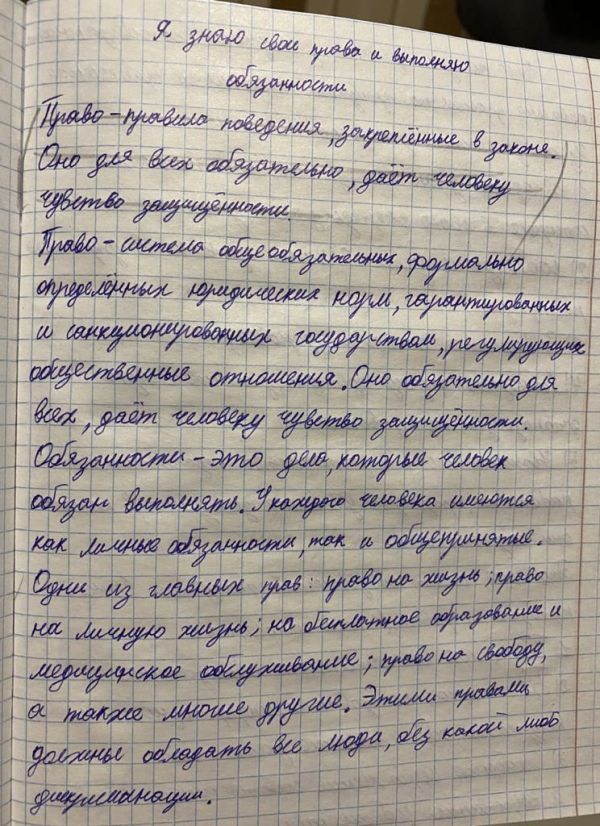 Я знаю свои права и выполняю
обязанности
Право – правила поведения, закреплённые в законе.
Оно для всех обязательно, даёт человеку
чувство защищённости.
Право – система общеобязательных, формально
определённых юридических норм, гарантированных
и санкционированных государством, регулирующих
общественные отношения. Оно обязательно для
всех, даёт человеку чувство защищённости.
Обязанности – это дела, которые человек
обязан выполнять. У каждого человека имеются
как личные обязанности, так и общепринятые.
Одни из главных прав: право на жизнь; право
на личную жизнь; на бесплатное образование и
медицинское обслуживание; право на свободу,
а также многие другие. Этими правами
должны обладать все люди, без какой либо
дискриминации.